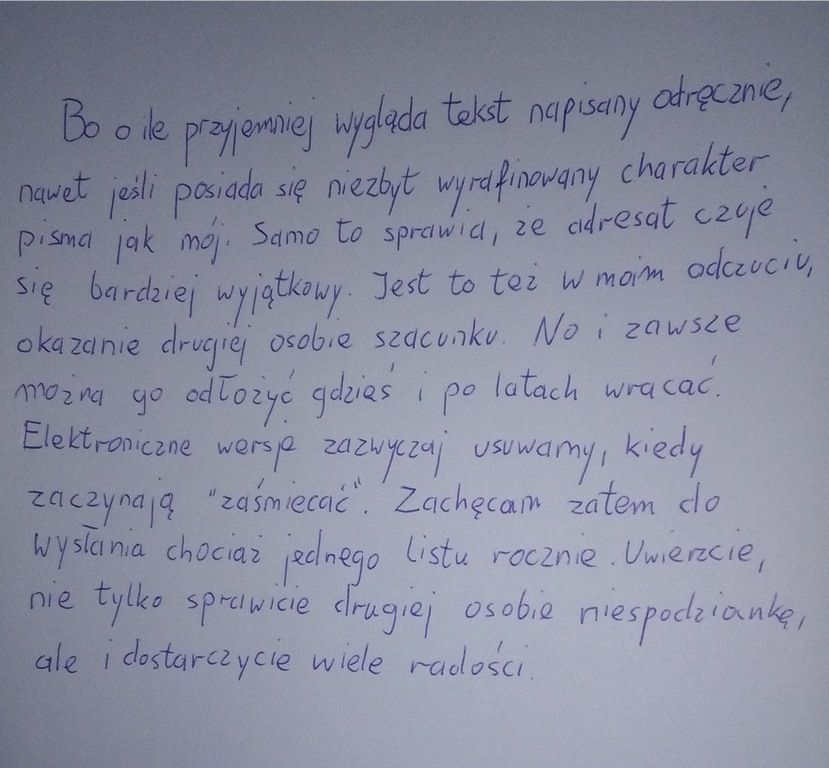 Bo o ile przyjemniej wygląda tekst napisany odręcznie,
nawet jeśli posiada się niezbyt wyrafinowany charakter
pisma jak mój. Samo to sprawia, że adresat czuje
się bardziej wyjątkowy. Jest to też w moim odczuciu,
okazanie drugiej osobie szacunku. No i zawsze
można go odłożyć gdzieś i po latach wracać.
Elektroniczne wersje zazwyczaj usuwamy, kiedy
zaczynają "zaśmiecać". Zachęcam zatem do
wysłania chociaż jednego listu rocznie. Uwierzcie,
nie tylko sprawicie drugiej osobie niespodziankę,
ale i dostarczycie wiele radości.